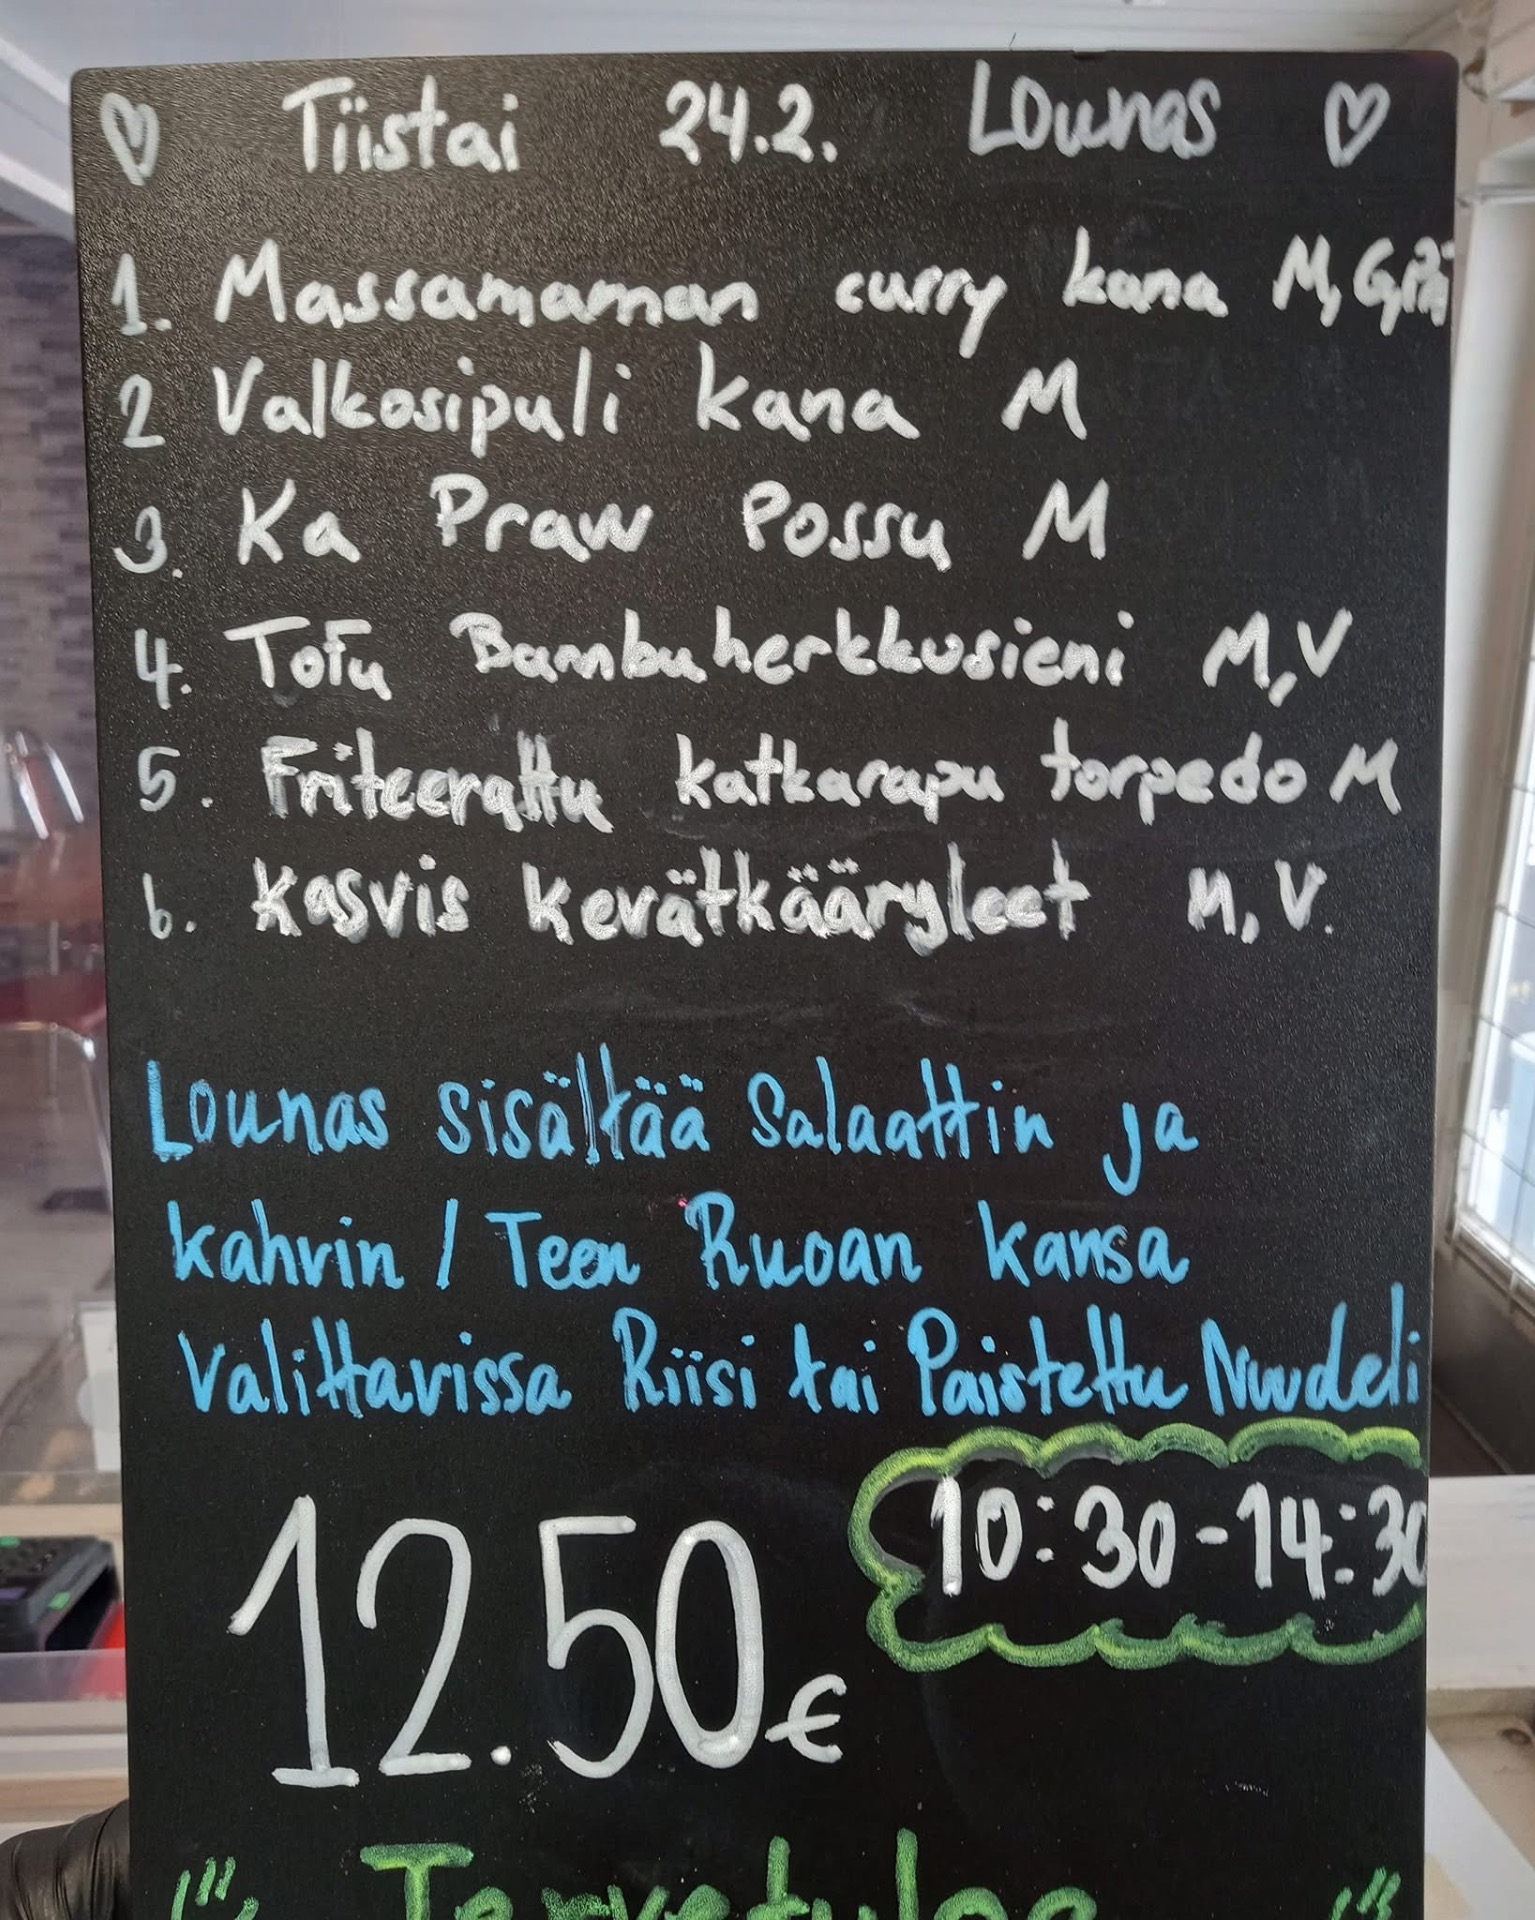 ♡ Tiistai 24.2. Lounas ♡
1. Massamaman curry kana M, G, Pä
2 Valkosipuli kana M
3. Ka Praw Possu M
4. Tofu Bambuherkkusieni M, V
5. Friteerattu katkarapu torpedo M
6. Kasvis kevätkääryleet M, V.
Lounas sisältää Salaattin ja
kahvin / Teen Ruoan kansa
Valittavissa Riisi tai Paistettu Nuudeli
10:30-14:30
12.50€
Tervetuloa